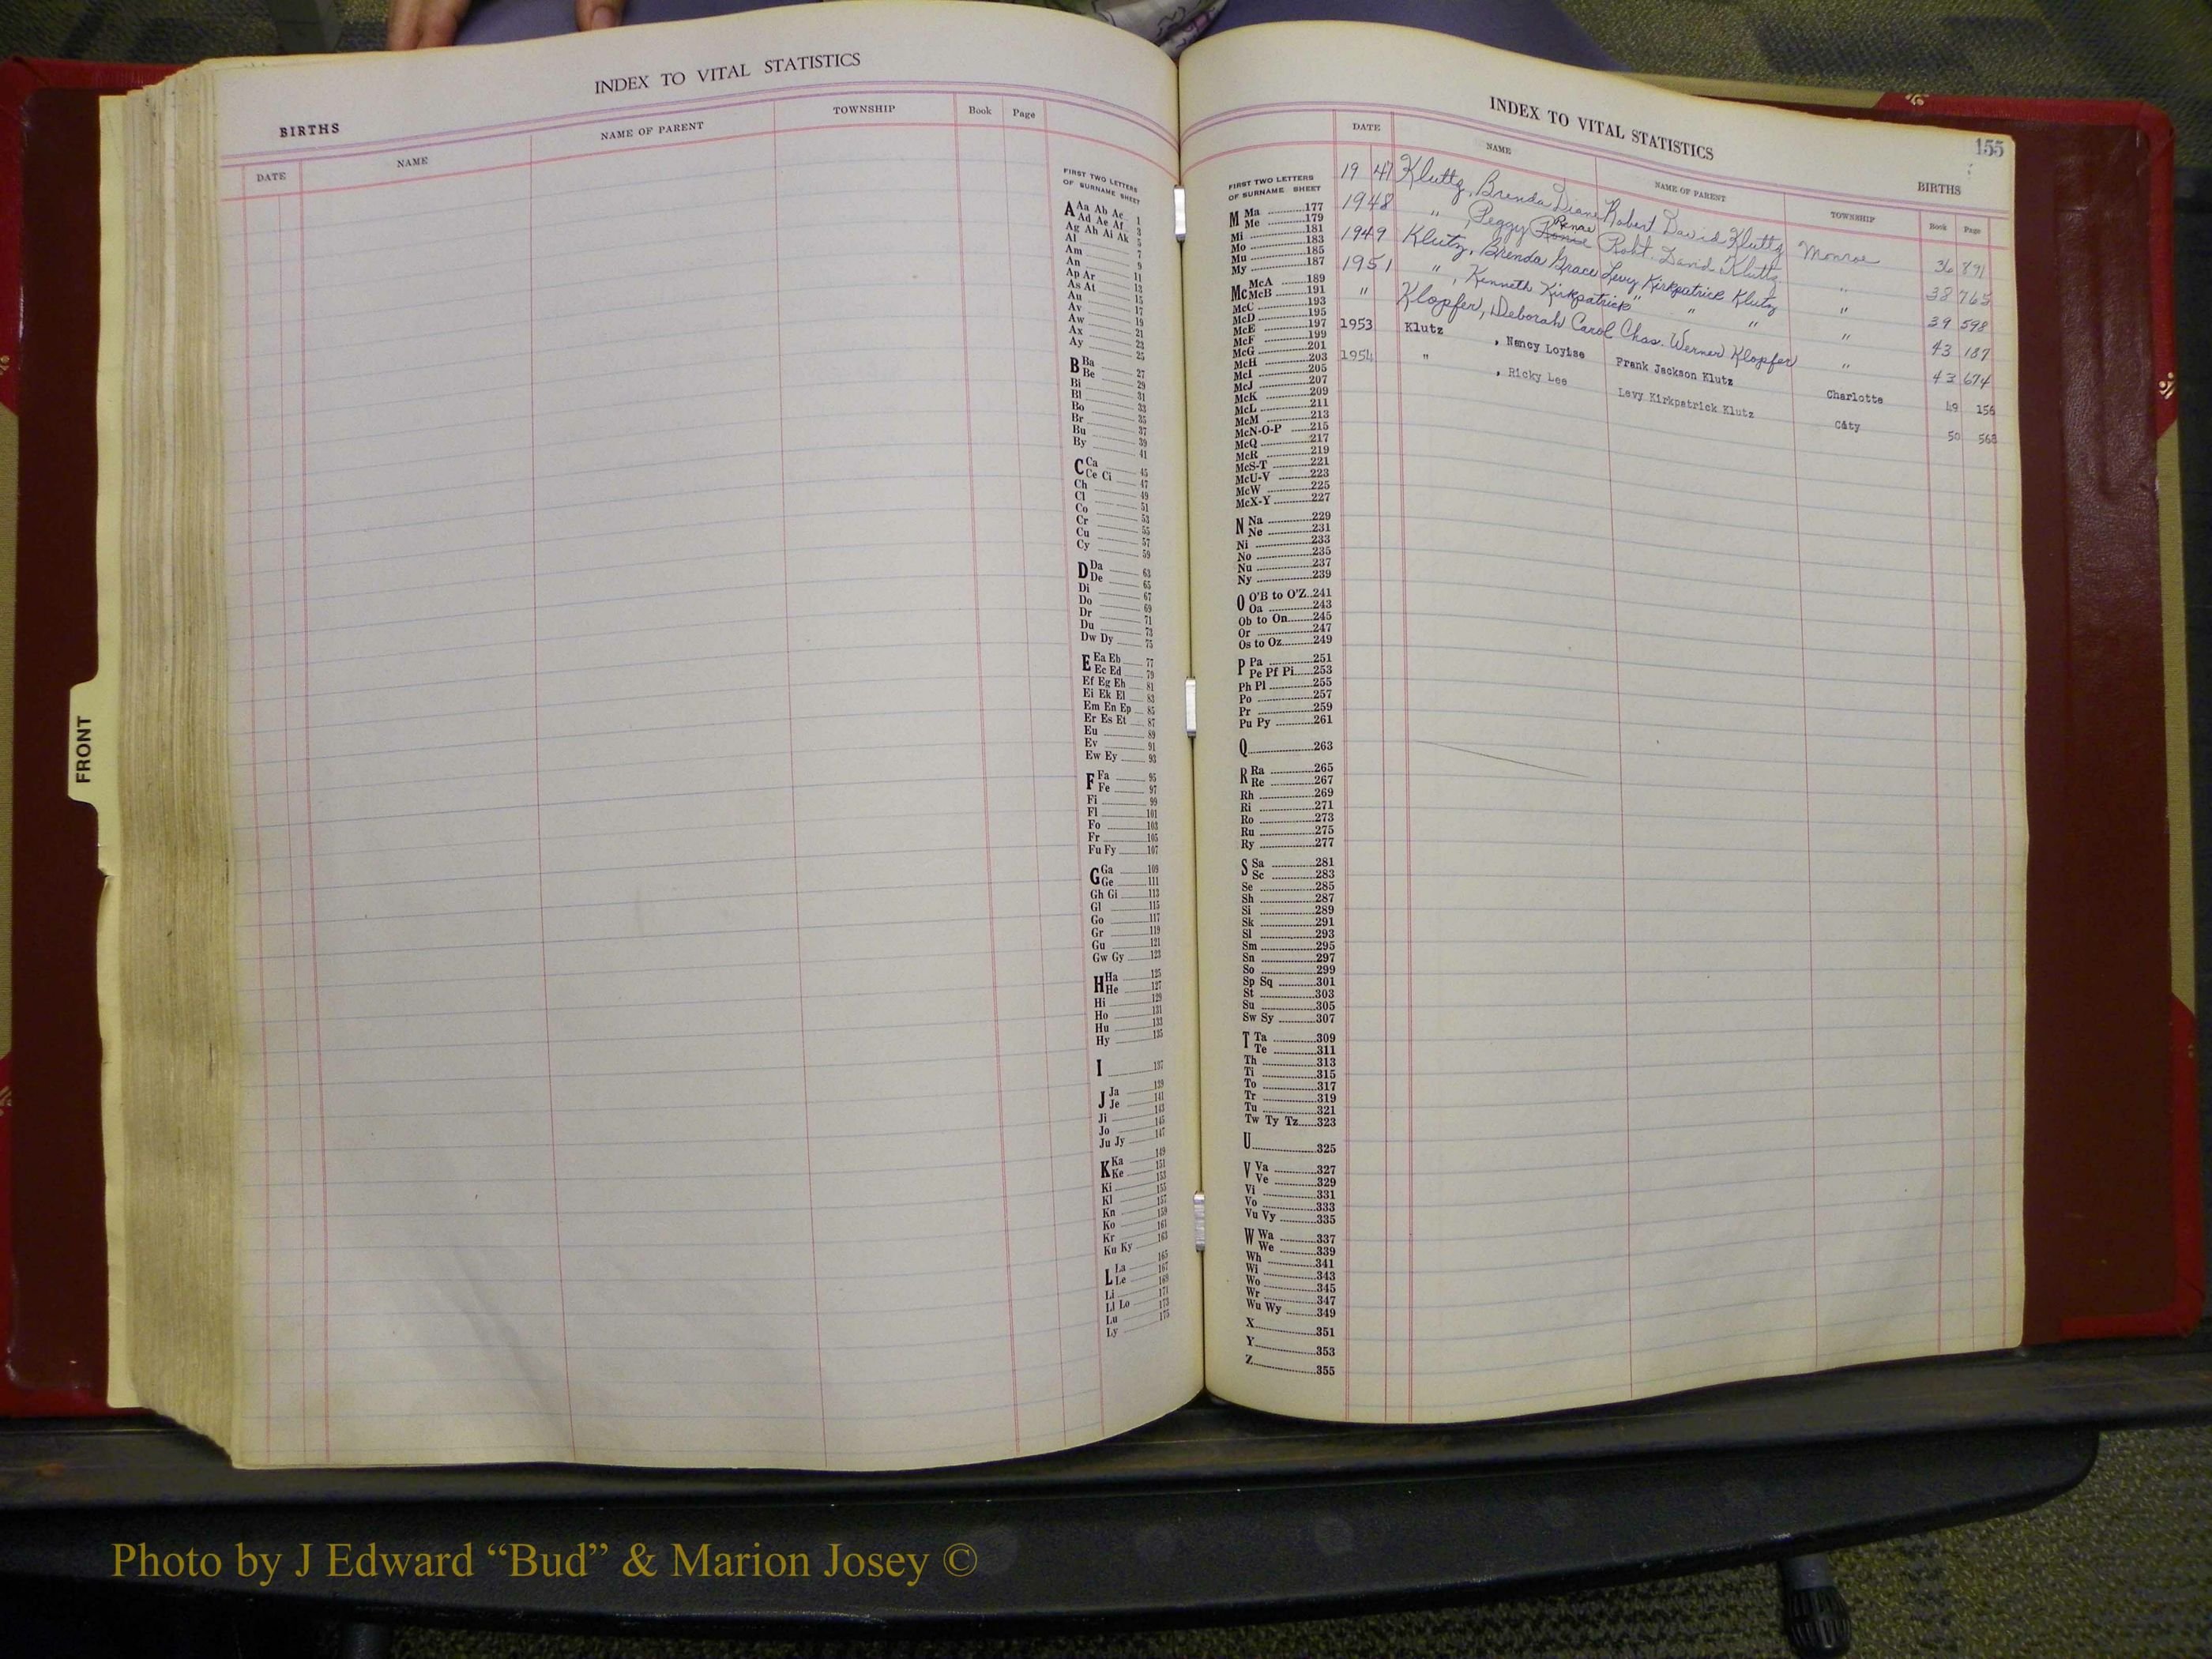 INDEX TO VITAL STATISTICS
BIRTHS
DATE NAME NAME OF PARENT TOWNSHIP Book Page
FIRST TWO LETTERS
OF SURNAME SHEET
A Aa Ab Ac 1
Ad Ae Af 3
Ag Ah Ai Ak 5
Al 7
Am 9
An 11
Ap Ar 13
As At 15
Au 17
Av 19
Aw 21
Ax 23
Ay 25
B Ba 27
Be 29
Bi 31
Bl 33
Bo 35
Br 37
Bu 39
By 41
C Ca 45
Ce Ci 47
Ch 49
Cl 51
Co 53
Cr 55
Cu 57
Cy 59
D Da 63
De 65
Di 67
Do 69
Dr 71
Du 73
Dw Dy 75
E Ea Eb 77
Ec Ed 79
Ef Eg Eh 81
Ei Ek El 83
Em En Ep 85
Er Es Et 87
Eu 89
Ev 91
Ew Ey 93
F Fa 95
Fe 97
Fi 99
Fl 101
Fo 103
Fr 105
Fu Fy 107
G Ga 109
Ge 111
Gh Gi 113
Gl 115
Go 117
Gr 119
Gu 121
Gw Gy 123
H Ha 125
He 127
Hi 129
Ho 131
Hu 133
Hy 135
I 137
J Ja 139
Je 141
Ji 143
Jo 145
Ju Jy 147
K Ka 149
Ke 151
Ki 153
Kl 155
Kn 157
Ko 159
Kr 161
Ku Ky 163
L La 165
Le 167
Li 169
Ll Lo 171
Lu 173
Ly 175
INDEX TO VITAL STATISTICS
155
BIRTHS
DATE NAME NAME OF PARENT TOWNSHIP Book Page
1947 Kluttz, Brenda Diane Robert David Kluttz Monroe 36 891
1948 " , Peggy Renae Robt. David Kluttz " 38 765
1949 Klutz, Brenda Grace Levy Kirkpatrick Klutz " 39 598
1951 " , Kenneth Kirkpatrick " " " " 43 187
" Klopfer, Deborah Carol Chas. Werner Klopfer " 43 674
1953 Klutz , Nancy Loyise Frank Jackson Klutz Charlotte 49 156
1954 " , Ricky Lee Levy Kirkpatrick Klutz City 50 568
FIRST TWO LETTERS
OF SURNAME SHEET
M Ma 177
Me 179
Mi 181
Mo 183
Mu 185
My 187
Mc McA 189
McB 191
McC 193
McD 195
McE 197
McF 199
McG 201
McH 203
McI 205
McJ 207
McK 209
McL 211
McM 213
McN-O-P 215
McQ 217
McR 219
McS-T 221
McU-V 223
McW 225
McX-Y 227
N Na 229
Ne 231
Ni 233
No 235
Nu 237
Ny 239
O O'B to O'Z 241
Oa 243
Ob to On 245
Or 247
Os to Oz 249
P Pa 251
Pe Pf Pi 253
Ph Pl 255
Po 257
Pr 259
Pu Py 261
Q 263
R Ra 265
Re 267
Rh 269
Ri 271
Ro 273
Ru 275
Ry 277
S Sa 281
Sc 283
Se 285
Sh 287
Si 289
Sk 291
Sl 293
Sm 295
Sn 297
So 299
Sp Sq 301
St 303
Su 305
Sw Sy 307
T Ta 309
Te 311
Th 313
Ti 315
To 317
Tr 319
Tu 321
Tw Ty Tz 323
U 325
V Va 327
Ve 329
Vi 331
Vo 333
Vu Vy 335
W Wa 337
We 339
Wh 341
Wi 343
Wo 345
Wr 347
Wu Wy 349
X 351
Y 353
Z 355
FRONT
Photo by J Edward “Bud” & Marion Josey ©